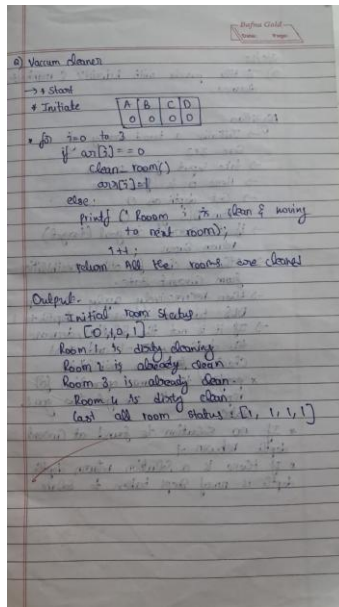 Bafna Gold
Date: Page:
a) Vaccum cleaner
→ * Start
* Initiate
A B C D
0 0 0 0
* for i=0 to 3
if ar[i] == 0
clean room()
arr[i]=1
else.
printf (" Rooom i is clean & moving
to next room);
i++;
return All the rooms are cleaned
Output-
Initial room status
[0,1,0,1]
Room 1 is dirty cleaning
Room 2 is already clean
Room 3, is already clean.
Room 4 is dirty clean
last all room status: [1, 1, 1, 1]